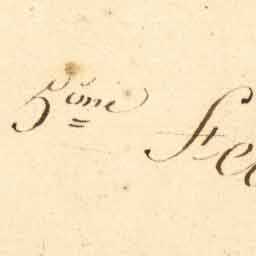 5ème Fe